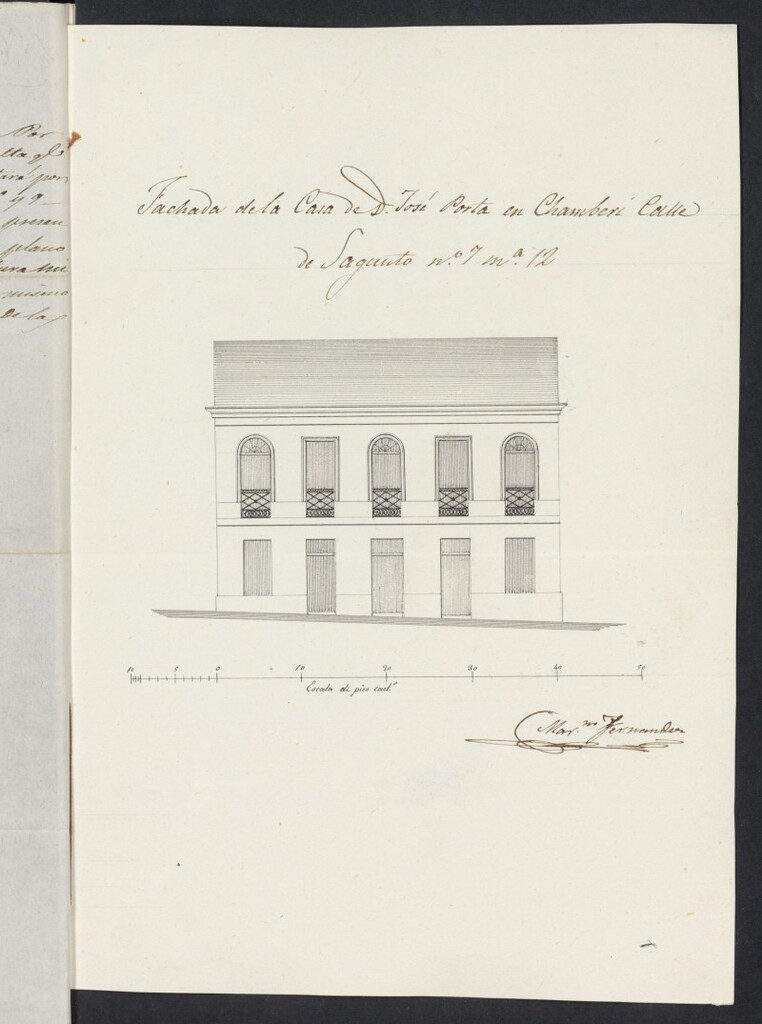 Por
tta q.e
ará por
n.º 49
presen
plano
ura mi
mismo
de la
Fachada de la Casa de D. José Porta en Chamberí Calle
de Sagunto n.º 7 m.ª 12
10 5 0 10 20 30 40 50
Escala de pies cast.s
Mar.no Fernandez